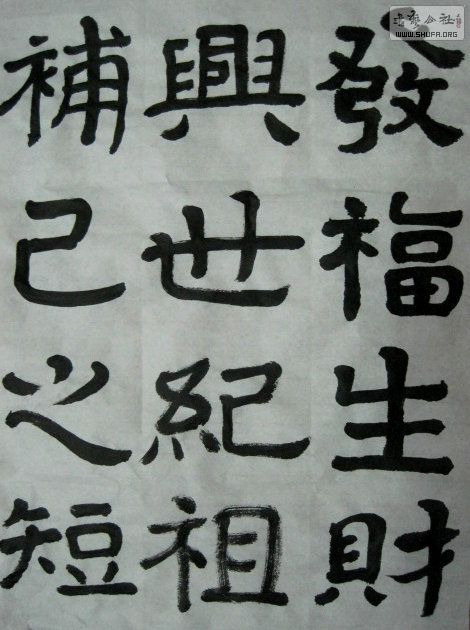 發福生財
興世紀祖
補己之短
WWW.SHUFA.ORG